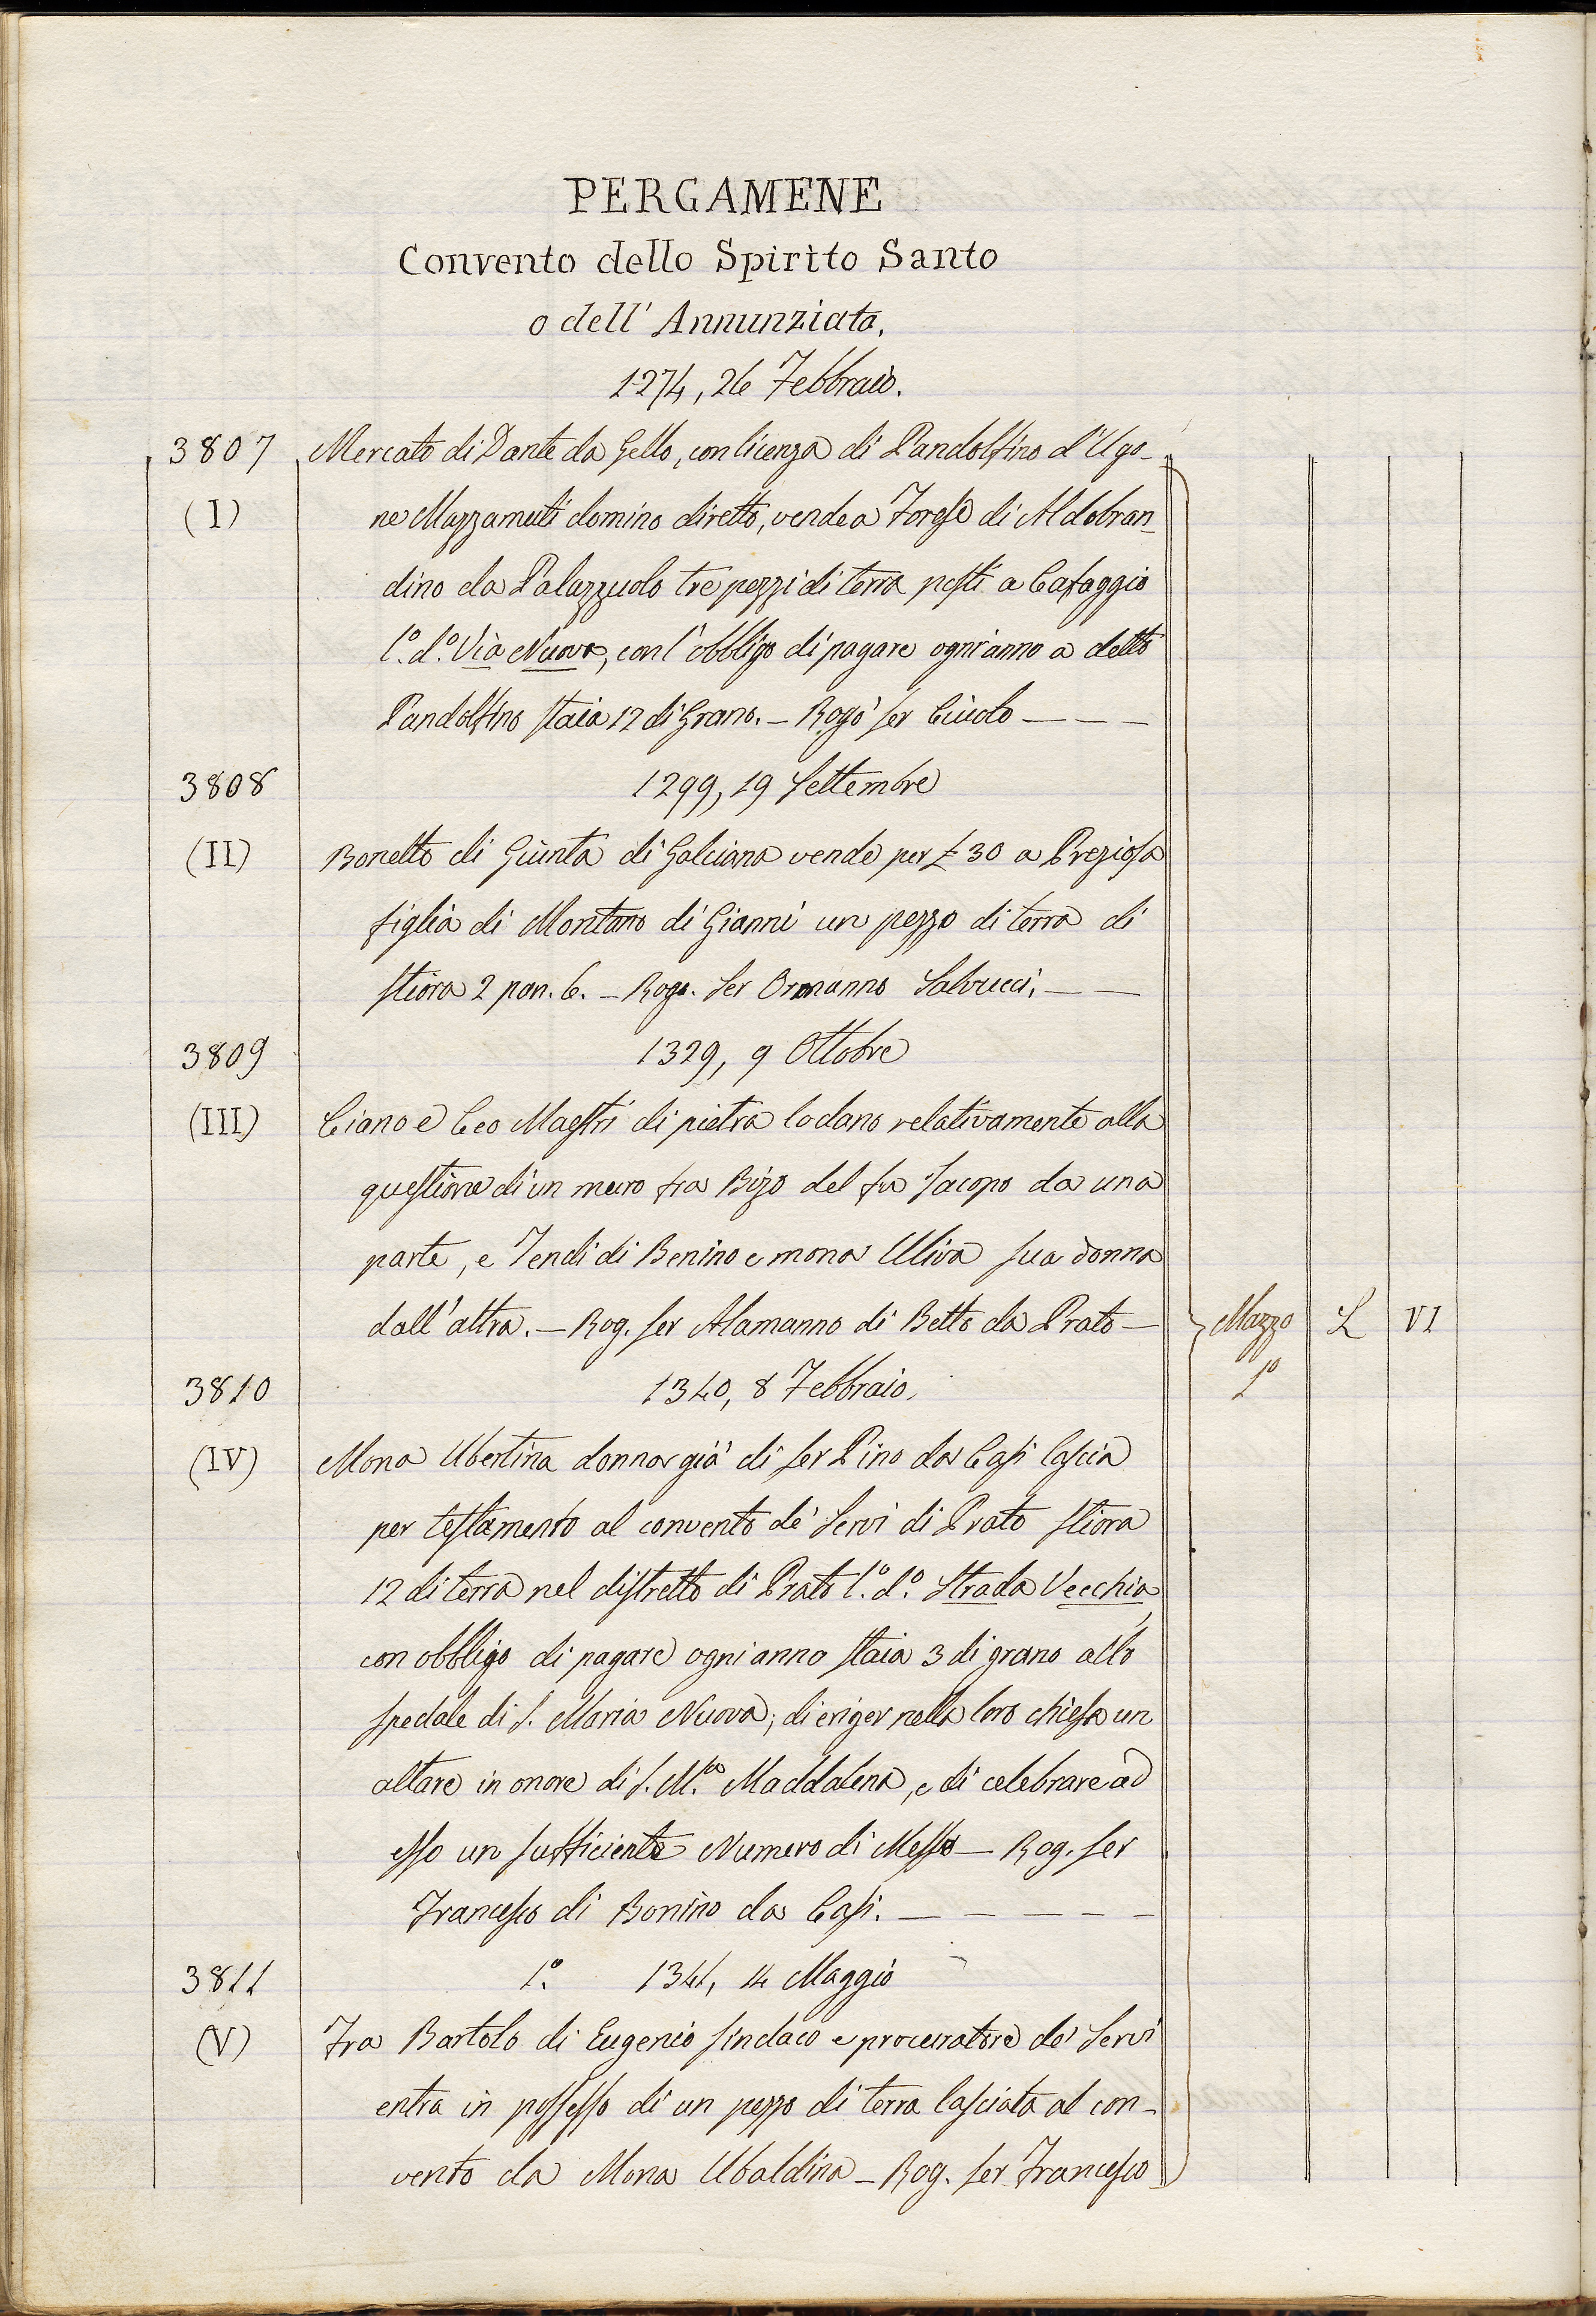 PERGAMENE
Convento dello Spirito Santo
o dell' Annunziata.
1274, 26 Febbraio.
3807 Mercato di Dante da Gello, con licenza di Pandolfino d'Ugo-
(I) ne Mazzamuti domino diretto, vende a Forese di Aldobran-
dino da Palazzuolo tre pezzi di terra posti a Cafaggio
l.º d.º Via Nuova, con l'obbligo di pagare ogni anno a detto
Pandolfino staia 12 di Grano. – Rogò ser Ciuolo – – –
3808 1299, 19 Settembre
(II) Bonetto di Giunta di Galciana vende per £ 30 a Preziosa
figlia di Montano di Gianni un pezzo di terra di
stiora 2 pan. 6. – Rogo. Ser Ormanno Salvucci, – –
3809 1329, 9 Ottobre
(III) Ciano e Ceo Maestri di pietra lodano relativamente alla
questione di un muro fra Bizo del fu Jacopo da una
parte, e Tendi di Benino e mona Uliva sua donna
dall'altra. – Rog. ser Alamanno di Betto da Prato – Mazzo L VI
3810 1340, 8 Febbraio. 1º
(IV) Mona Ubertina donna già di ser Pino da Casi lascia
per testamento al convento de' Servi di Prato stiora
12 di terra nel distretto di Prato l.º d.º Strada Vecchia,
con obbligo di pagare ogni anno staia 3 di grano allo
spedale di S. Maria Nuova; di eriger nella loro chiesa un
altare in onore di S. M.ª Maddalena, e di celebrare ad
esso un sufficiente Numero di Messe – Rog. ser
Francesco di Bonino da Casi. – – – – –
3811 1.º 1341, 14 Maggio
(V) Fra Bartolo di Eugenio sindaco e procuratore de' Servi
entra in possesso di un pezzo di terra lasciata al con-
vento da Mona Ubaldina – Rog. ser Francesco